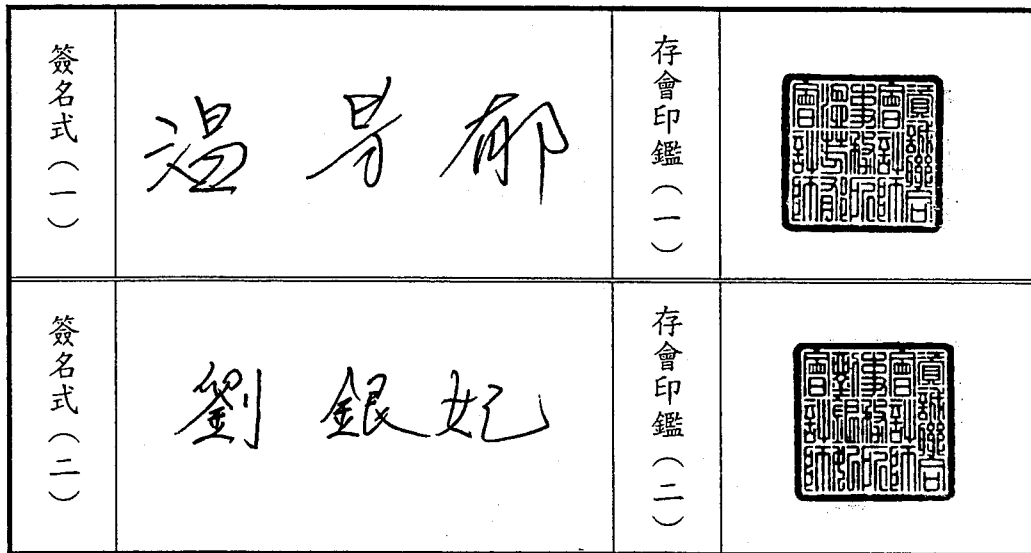 簽名式(一)
溫芳郁
存會印鑑(一)
資誠聯合
會計師
事務所
溫芳郁
會計師
簽名式(二)
劉銀妃
存會印鑑(二)
資誠聯合
會計師
事務所
劉銀妃
會計師